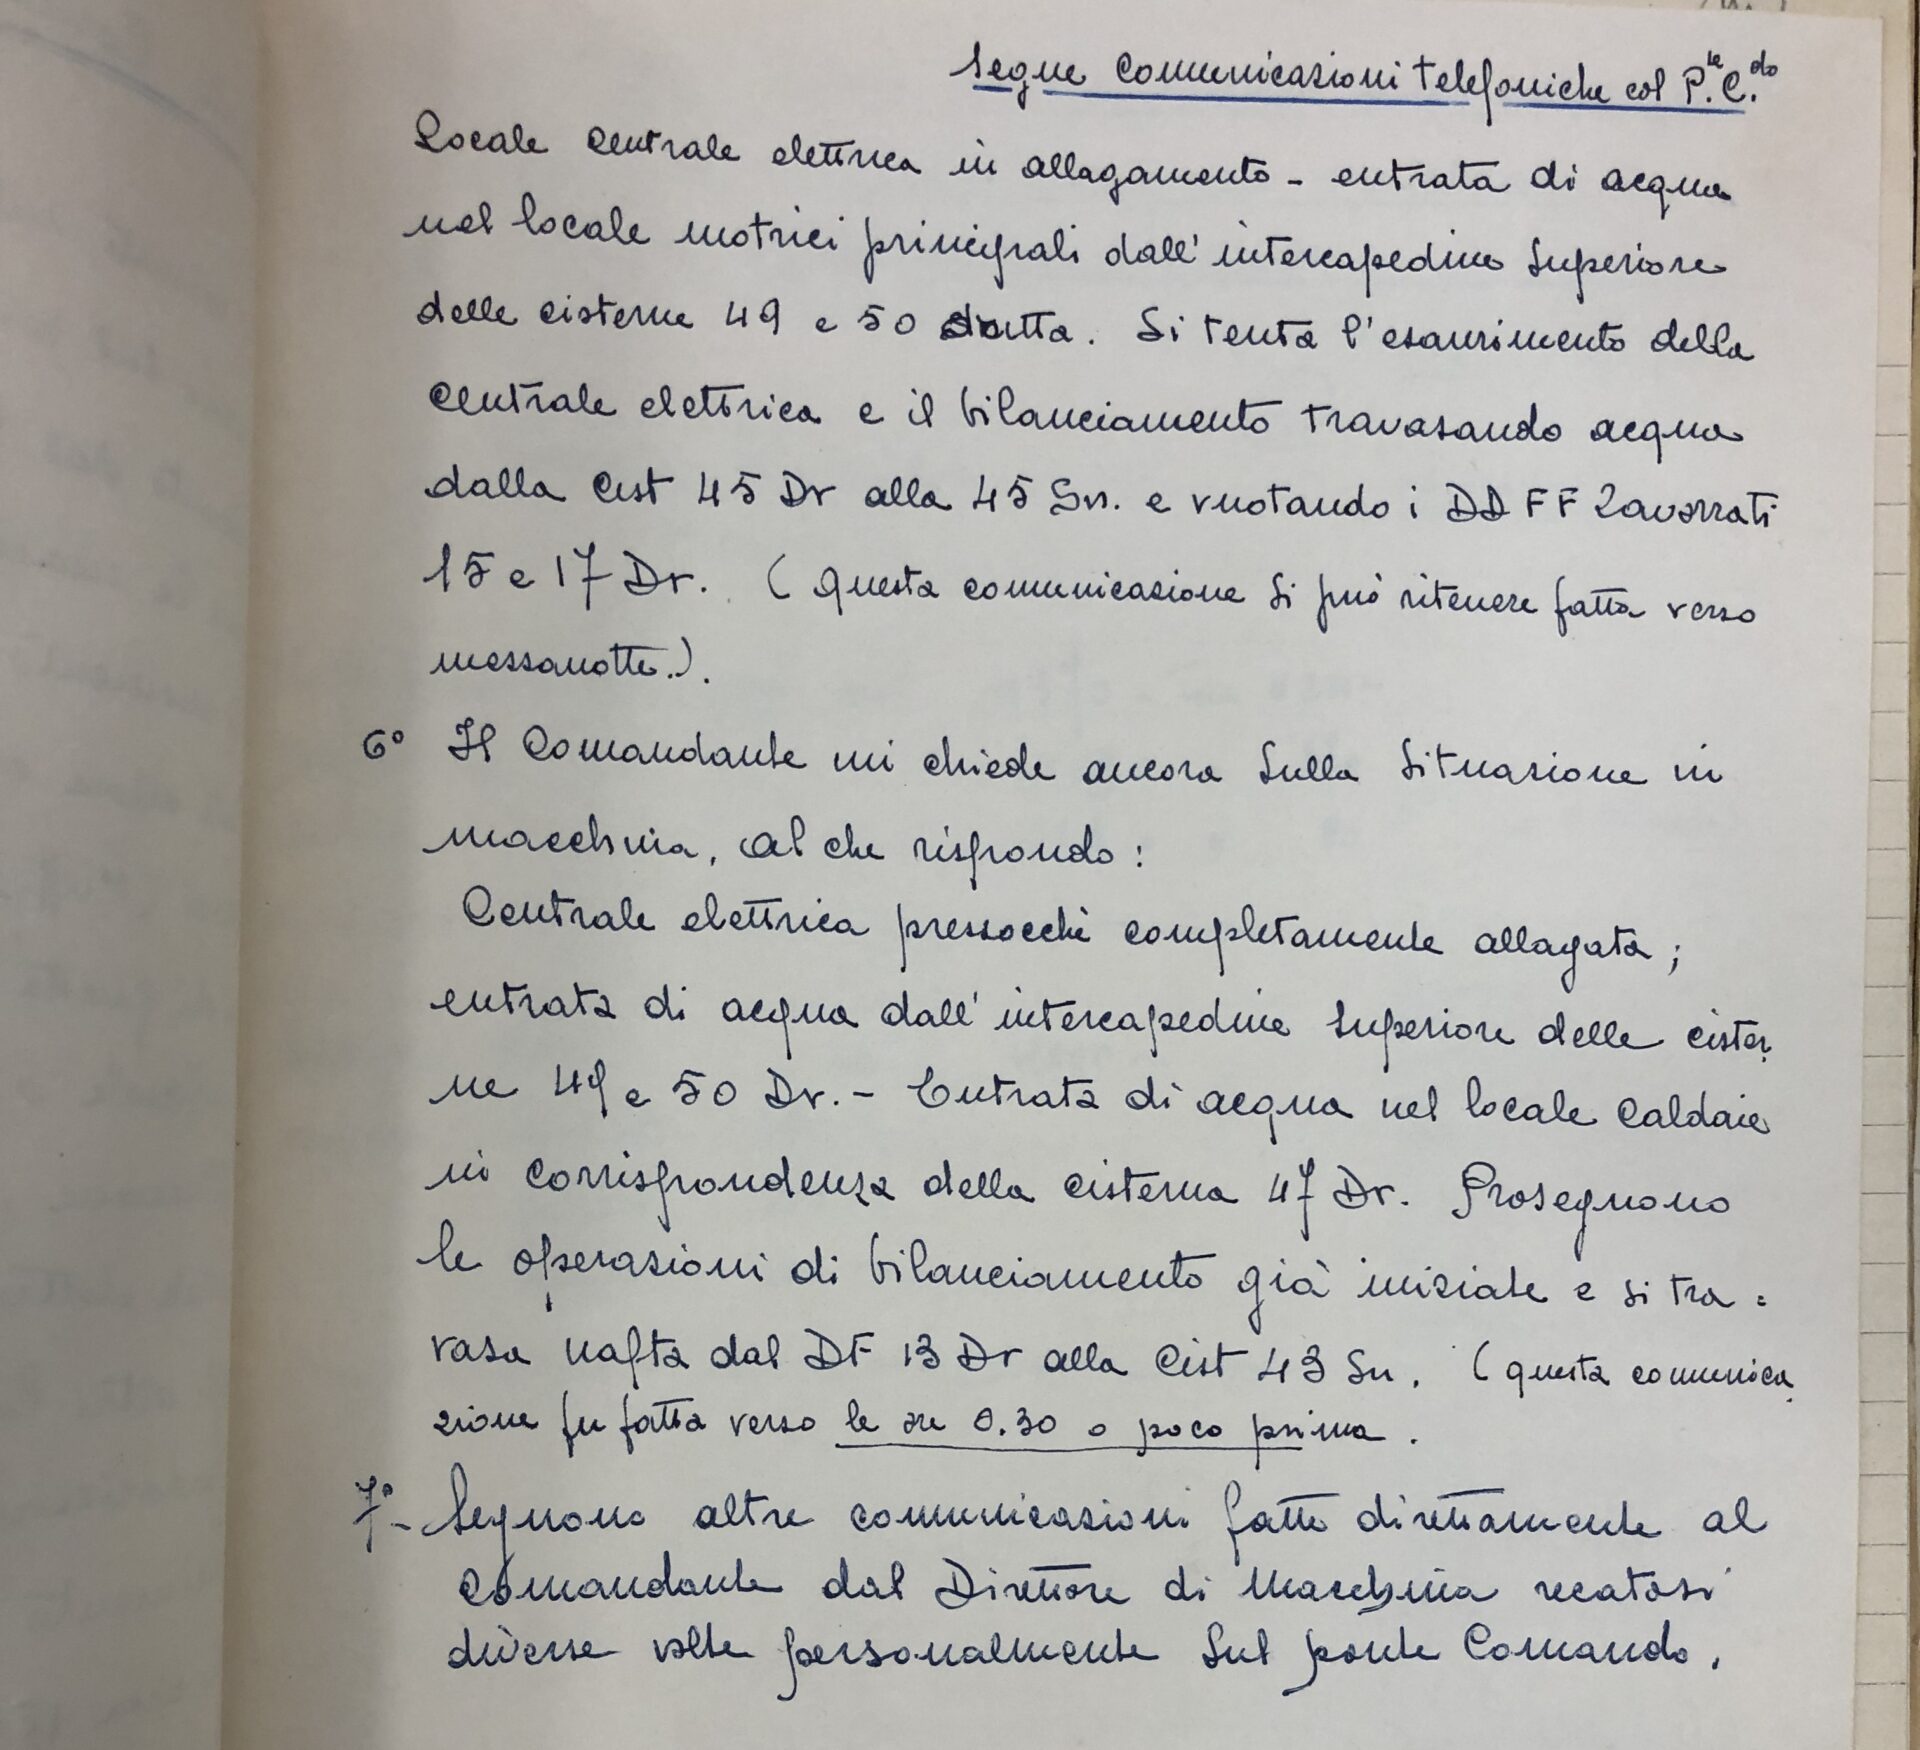 Segue comunicazioni telefoniche col P.te C.do
Locale centrale elettrica in allagamento - entrata di acqua
nel locale motrici principali dall'intercapedine superiore
delle cisterne 49 e 50 dritta. Si tenta l'esaurimento della
centrale elettrica e il bilanciamento travasando acqua
dalla Cist 45 Dr alla 45 Sn. e vuotando i DD FF Zavorrati
15 e 17 Dr. (questa comunicazione si può ritenere fatta verso
mezzanotte.).
6° Il Comandante mi chiede ancora sulla situazione in
macchina, al che rispondo:
Centrale elettrica pressocchè completamente allagata;
entrata di acqua dall'intercapedine superiore delle cister-
ne 49 e 50 Dr. - Entrata di acqua nel locale caldaie
in corrispondenza della cisterna 47 Dr. Proseguono
le operazioni di bilanciamento già iniziate e si tra=
vasa nafta dal DF 13 Dr alla Cist 43 Sn. (questa comunica-
zione fu fatta verso le ore 0.30 o poco prima.
7°- Seguono altre comunicazioni fatte direttamente al
Comandante dal Direttore di Macchina recatosi
diverse volte personalmente sul ponte Comando.